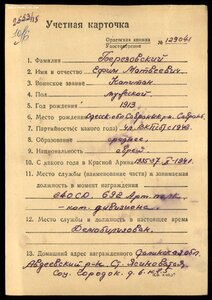 Учетная карточка
Орденская книжка
Удостоверение № 129041
1. Фамилия Березовский
2. Имя и отчество Ефим Матвеевич
3. Воинское звание Капитан
4. Пол мужской
5. Год рождения 1913
6. Место рождения
7. Партийность (с какого года) чл. ВКП(б) с 194
8. Образование среднее
9. Национальность еврей
10. С какого года в Красной Армии
11. Место службы (наименование части) и занимаемая
должность в момент награждения
692 Арт. полк
ком. дивизиона
12. Место службы и должность в настоящее время
Демобилизован.
13. Домашний адрес награжденного
Авдеевский р-н Ст. Ясиноватая
Соц. Городок. д. 6 кв. 5